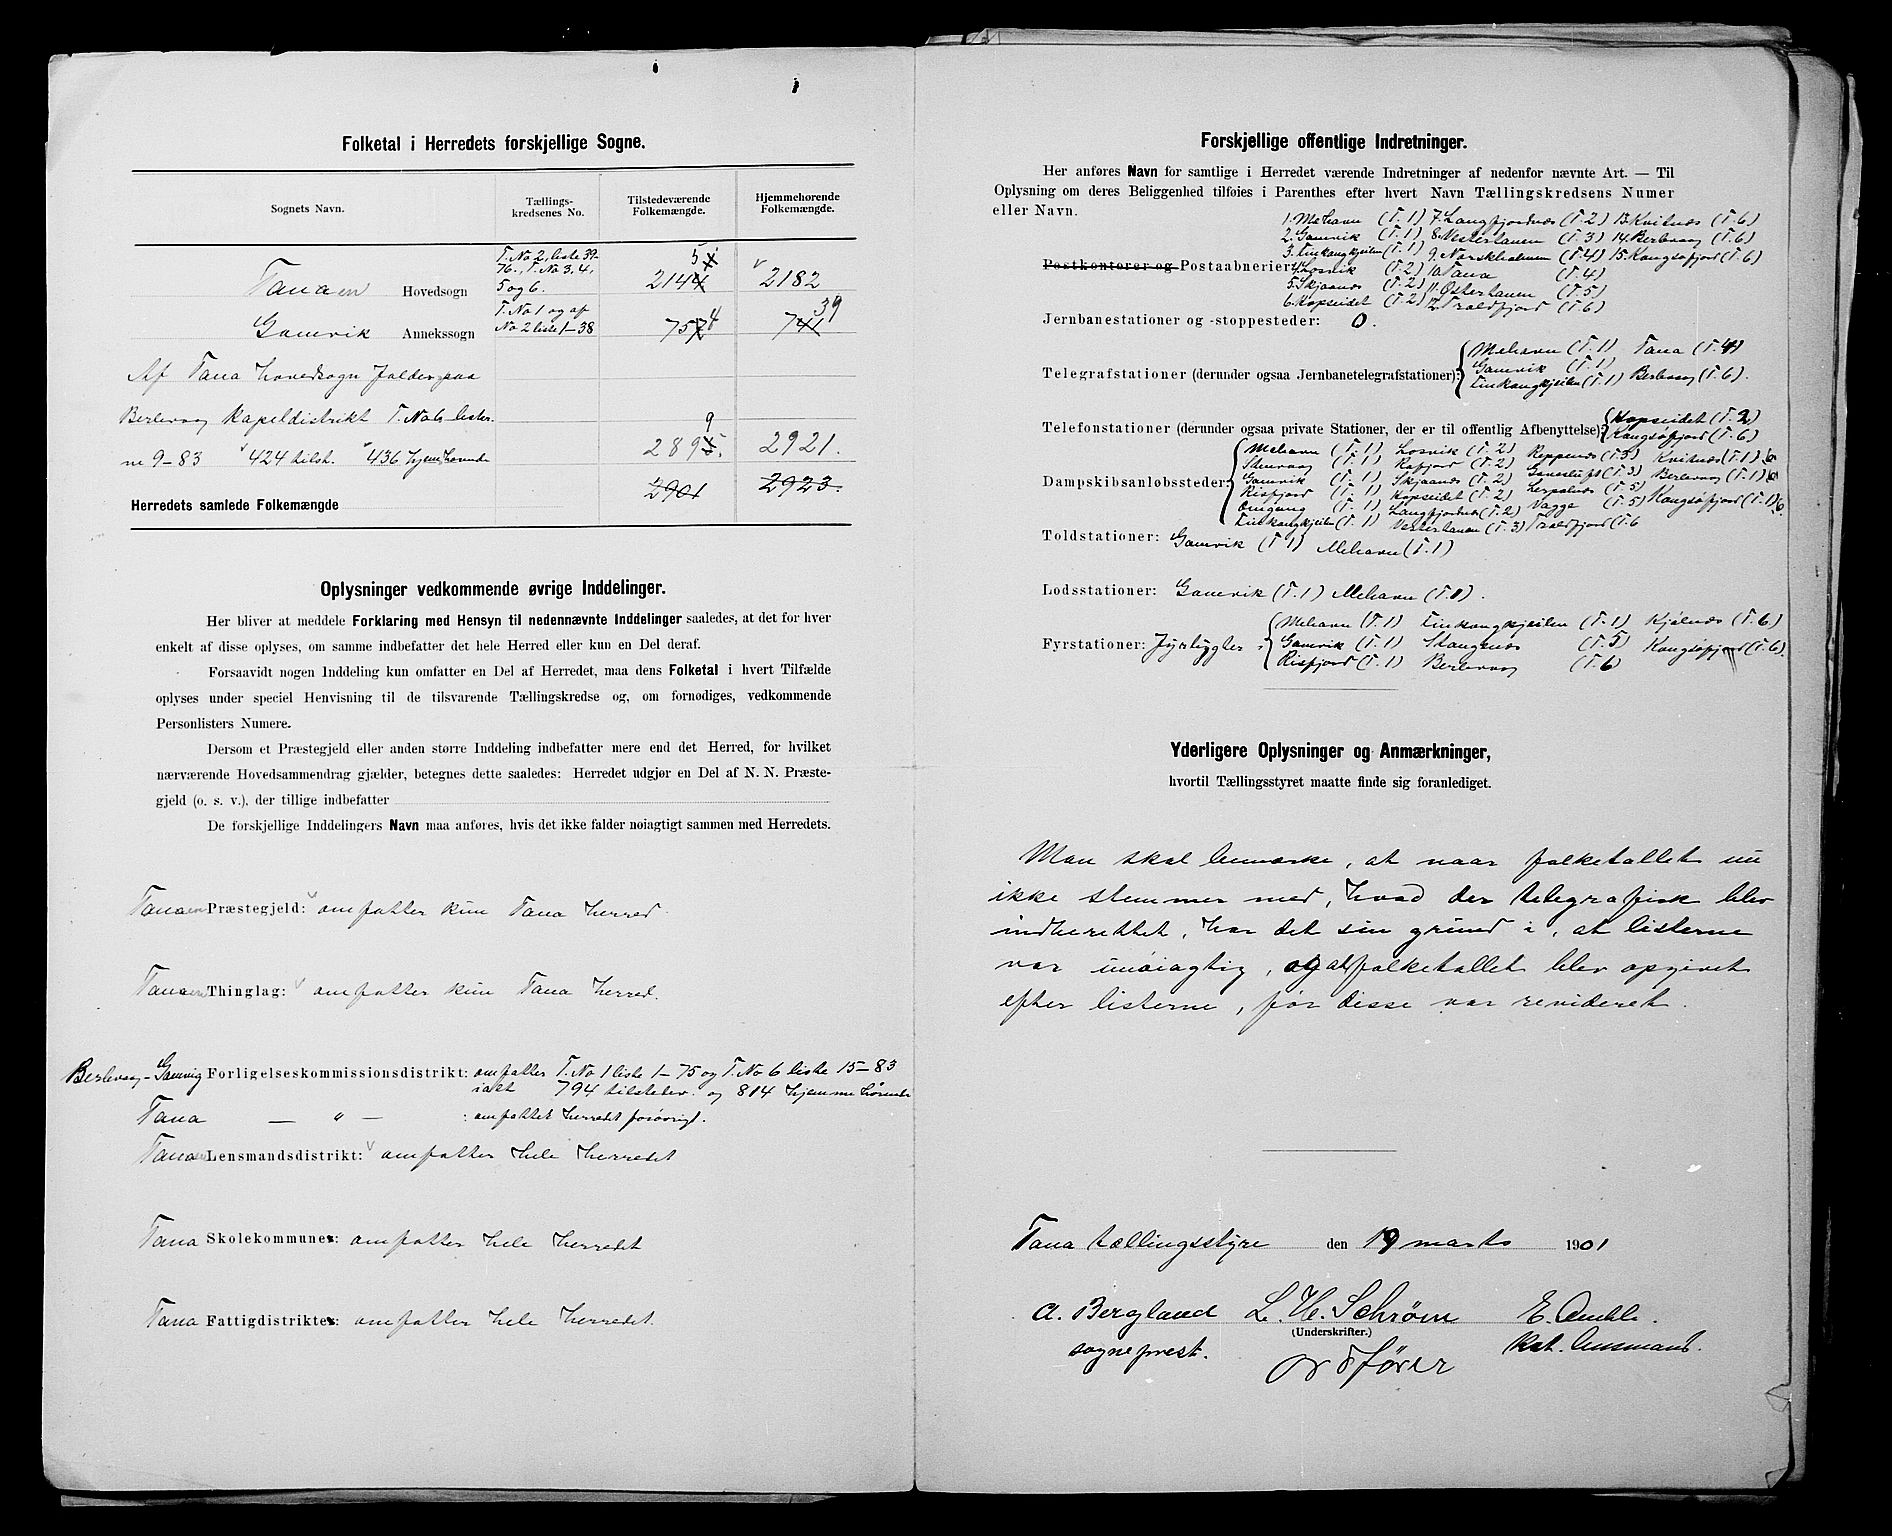 Folketal i Herredets forskjellige Sogne.
Sognets Navn.
Tællings-
kredsenes No.
Tilstedeværende
Folkemængde.
Hjemmehørende
Folkemængde.
T. No 2, liste 39-
76., T. No 3, 4,
5 og 6.
Tanaen Hovedsogn 2144 5 2182
T. No 1 og af
No 2 liste 1-38
Gamvik Annekssogn 757 4 741 39
Af Tana hovedsogn falder paa
Berlevaag kapeldistrikt T. No 6 lister
nr 9-83 424 tilst. 436 hjemhørende
2895. 9 2921.
2901 2923.
Herredets samlede Folkemængde
Oplysninger vedkommende øvrige Inddelinger.
Her bliver at meddele Forklaring med Hensyn til nedennævnte Inddelinger saaledes, at det for hver
enkelt af disse oplyses, om samme indbefatter det hele Herred eller kun en Del deraf.
Forsaavidt nogen Inddeling kun omfatter en Del af Herredet, maa dens Folketal i hvert Tilfælde
oplyses under speciel Henvisning til de tilsvarende Tællingskredse og, om fornødiges, vedkommende
Personlisters Numere.
Dersom et Præstegjeld eller anden større Inddeling indbefatter mere end det Herred, for hvilket
nærværende Hovedsammendrag gjælder, betegnes dette saaledes: Herredet udgjør en Del af N. N. Præste-
gjeld (o. s. v.), der tillige indbefatter
De forskjellige Inddelingers Navn maa anføres, hvis det ikke falder nøiagtigt sammen med Herredets.
Tanaen Præstegjeld: omfatter kun Tana herred.
Tanaen Thinglag: omfatter kun Tana herred.
Berlevaag-Gamvig Forligelseskommissionsdistrikt: omfatter T. No 1 liste 1-75 og T. No 6 liste 15-83
ialt 794 tilstedev. og 814 hjemmehørende
Tana — " — : omfattet herredet forøvrigt.
Tanaen Lensmandsdistrikt: omfatter hele herredet
Tana Skolekommune: omfatter hele herredet
Tana Fattigdistrikt: omfatter hele herredet.
Forskjellige offentlige Indretninger.
Her anføres Navn for samtlige i Herredet værende Indretninger af nedenfor nævnte Art. — Til
Oplysning om deres Beliggenhed tilføies i Parenthes efter hvert Navn Tællingskredsens Numer
eller Navn.
1. Mehavn (T. 1) 7. Langfjordnæs (T. 2) 13. Kvitnæs (T. 6)
2. Gamvik (T. 1) 8. Vestertanen (T. 3) 14. Berlevaag (T. 6)
3. Finkongkjeilen (T. 1) 9. Norskholmen (T. 4) 15. Kongsøfjord (T. 6)
Postkontorer og Postaabnerier: 4. Losvik (T. 2) 10. Tana (T. 4)
5. Skjaanæs (T. 2) 11. Østertanen (T. 5)
6. Hopseidet (T. 2) 12. Troldfjord (T. 6)
Jernbanestationer og -stoppesteder: 0.
Mehavn (T. 1) Tana (T. 4)
Telegrafstationer (derunder ogsaa Jernbanetelegrafstationer): Gamvik (T. 1)
Finkongkjeilen (T. 1) Berlevaag (T. 6).
Telefonstationer (derunder ogsaa private Stationer, der er til offentlig Afbenyttelse): Hopseidet (T. 2)
Kongsøfjord (T. 6)
Mehavn (T. 1) Losvik (T. 2) Reppenæs (T. 3) Kvitnæs (T. 1) 6
Stenvaag (T. 1) Rafjord (T. 2) Gavesluft (T. 3) Berlevaag (T. 1) 6
Dampskibsanløbssteder: Gamvik (T. 1) Skjaanæs (T. 2) Lerpolnæs (T. 5) Kongsøfjord (T. 1) 6.
Risfjord (T. 1) Hopseidet (T. 2) Vagge (T. 5)
Omgang (T. 1) Langfjordnæs (T. 2)
Finkongkjeilen (T. 1) Vestertanen (T. 3) Troldfjord (T. 6
Toldstationer: Gamvik (T 1) Mehavn (T. 1)
Lodsstationer: Gamvik (T. 1) Mehavn (T. 1).
Mehavn (T. 1) Finkongkjeilen (T. 1) Kjølnæs (T. 6)
Fyrstationer: Fyrlygter: Gamvik (T. 1) Stangenæs (T. 5) Kongsøfjord (T. 6).
Risfjord (T. 1) Berlevaag (T. 6)
Yderligere Oplysninger og Anmærkninger,
hvortil Tællingsstyret maatte finde sig foranlediget.
Man skal bemærke, at naar folketallet nu
ikke stemmer med, hvad der telegrafisk blev
indberettet, har det sin grund i, at listerne
var unøiagtig, og at folketallet blev opgivet
efter listerne, før disse var revideret.
Tana tællingsstyre den 19 marts 1901
A. Bergland L. H. Schrøm E.
(Underskrifter.)
sogneprest. ordfører Kst. lensmand.